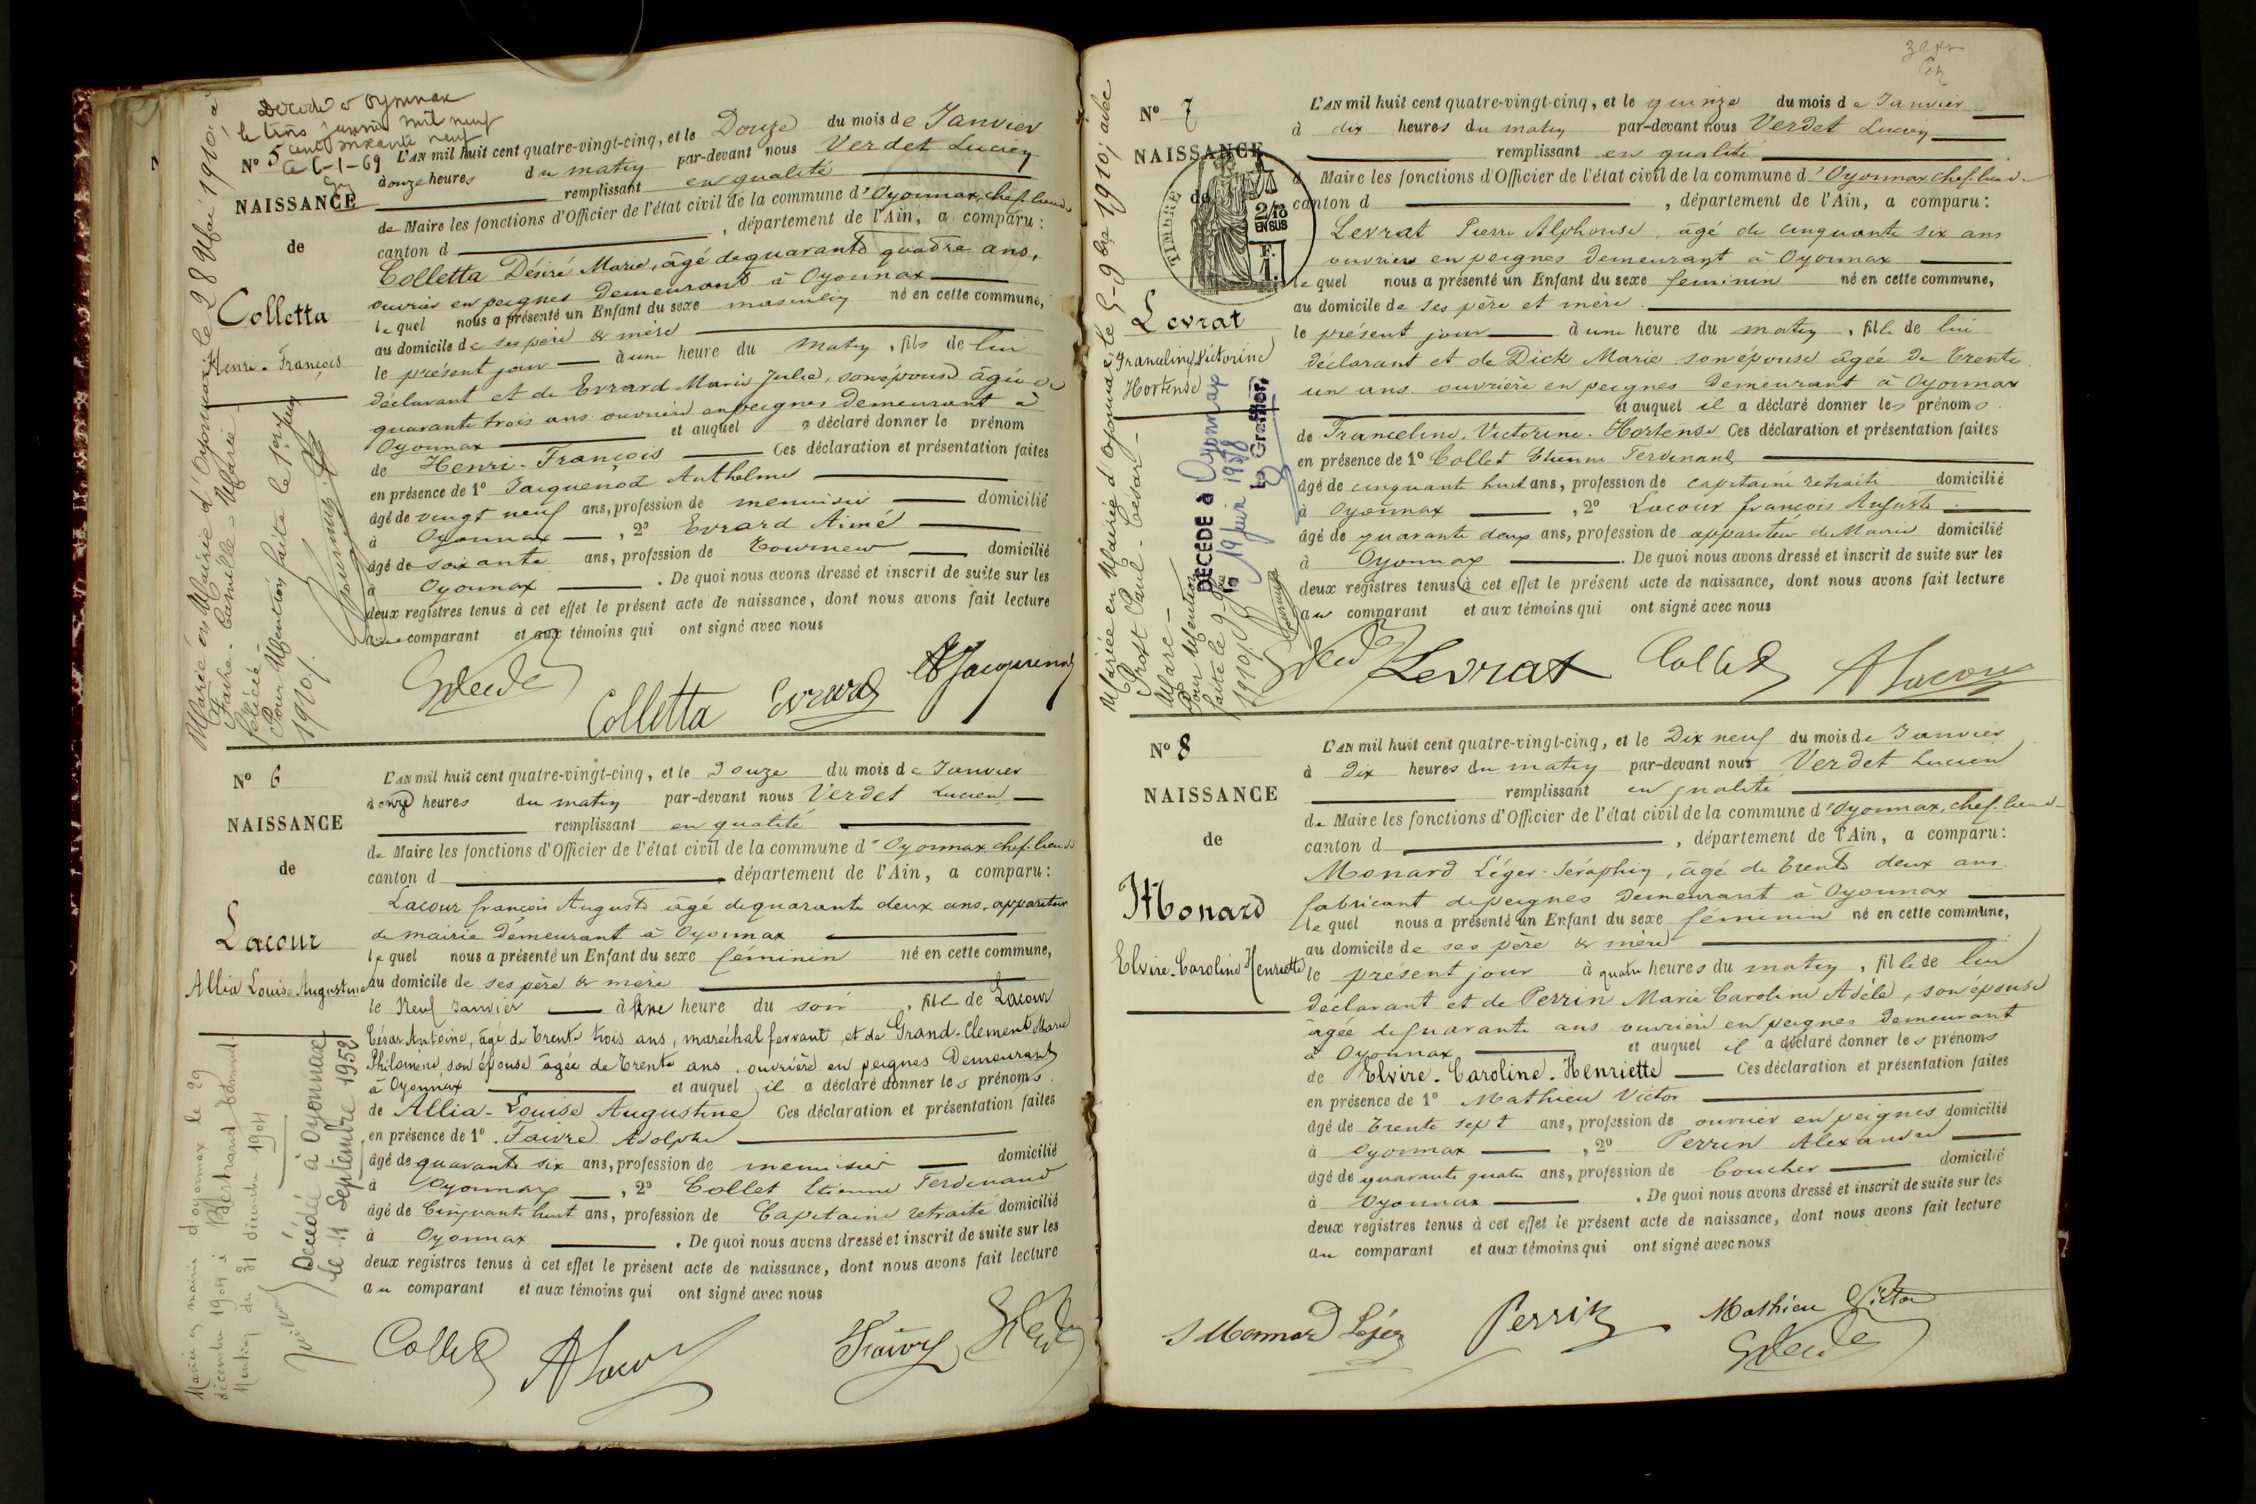 Décédé à Oyonnax
le trois janvier mil neuf
cent soixante neuf
Le 6-1-69
N° 5
NAISSANCE
de
Colletta
Henri-François
Marié en Mairie d'Oyonnax le 28 Mai 1910, à
Faivre-Camille-Marie
Félicie-
Pour Mention faite le 1er juin
1910.
L'AN mil huit cent quatre-vingt-cinq, et le Douze du mois de Janvier
à onze heures du matin par-devant nous Verdet Lucien
remplissant en qualité
de Maire les fonctions d'Officier de l'état civil de la commune d'Oyonnax, chef-lieu de
canton d , département de l'Ain, a comparu :
Colletta Désiré Marie, âgé de quarante quatre ans,
ouvrier en peignes demeurant à Oyonnax
lequel nous a présenté un Enfant du sexe masculin né en cette commune,
au domicile de ses père & mère
le présent jour à une heure du matin, fils de lui
déclarant et de Evrard Marie Julie, son épouse âgée de
quarante trois ans ouvrière en peignes demeurant à
Oyonnax et auquel a déclaré donner le prénom
de Henri-François Ces déclaration et présentation faites
en présence de 1° Jacquenod Anthelme
âgé de vingt neuf ans, profession de menuisier domicilié
à Oyonnax , 2° Evrard Aimé
âgé de soixante ans, profession de Tourneur domicilié
à Oyonnax . De quoi nous avons dressé et inscrit de suite sur les
deux registres tenus à cet effet le présent acte de naissance, dont nous avons fait lecture
au comparant et aux témoins qui ont signé avec nous
Colletta Evrard Jacquenod
N° 6
NAISSANCE
de
Lacour
Allia Louise Augustine
Mariée en mairie d'Oyonnax le 29
décembre 1904 à Bertrand Edmond
Mention du 31 décembre 1904
Décédée à Oyonnax
le 11 Septembre 1952
L'AN mil huit cent quatre-vingt-cinq, et le Douze du mois de Janvier
à onze heures du matin par-devant nous Verdet Lucien
remplissant en qualité
de Maire les fonctions d'Officier de l'état civil de la commune d'Oyonnax chef-lieu de
canton d , département de l'Ain, a comparu :
Lacour françois Auguste âgé de quarante deux ans, appariteur
de mairie demeurant à Oyonnax
lequel nous a présenté un Enfant du sexe féminin né en cette commune,
au domicile de ses père & mère
le Neuf Janvier à une heure du soir , fille de Lacour
César Antoine, âgé de trente trois ans, maréchal ferrant, et de Grand-Clement Marie
Philomène, son épouse âgée de trente ans, ouvrière en peignes demeurant
à Oyonnax et auquel il a déclaré donner les prénoms
de Allia-Louise Augustine Ces déclaration et présentation faites
en présence de 1° Faivre Adolphe
âgé de quarante six ans, profession de menuisier domicilié
à Oyonnax , 2° Collet Etienne Ferdinand
âgé de Cinquante huit ans, profession de Capitaine retraité domicilié
à Oyonnax . De quoi nous avons dressé et inscrit de suite sur les
deux registres tenus à cet effet le présent acte de naissance, dont nous avons fait lecture
au comparant et aux témoins qui ont signé avec nous
Collet A Lacour Faivre
N° 7
NAISSANCE
de
TIMBRE
2/10
EN SUS
F.
1.
Levrat
Franceline Victorine
Hortense
Mariée en Mairie d'Oyonnax le 5-9bre 1910, avec
Prost Paul-César-
Marc-
Pour Mention
faite le 9-9bre
1910.
DÉCÉDÉ à Oyonnax
le 19 Juin 1958
Le Greffier,
L'AN mil huit cent quatre-vingt-cinq, et le quinze du mois de Janvier
à dix heures du matin par-devant nous Verdet Lucien
remplissant en qualité
d Maire les fonctions d'Officier de l'état civil de la commune d'Oyonnax chef-lieu de
canton d , département de l'Ain, a comparu :
Levrat Pierre Alphonse, âgé de cinquante six ans
ouvrier en peignes demeurant à Oyonnax
lequel nous a présenté un Enfant du sexe féminin né en cette commune,
au domicile de ses père et mère
le présent jour à une heure du matin, fille de lui
déclarant et de Dick Marie son épouse âgée de trente
un ans ouvrière en peignes demeurant à Oyonnax
et auquel il a déclaré donner les prénoms
de Franceline, Victorine-Hortense Ces déclaration et présentation faites
en présence de 1° Collet Etienne Ferdinand
âgé de cinquante huit ans, profession de capitaine retraité domicilié
à Oyonnax , 2° Lacour françois Auguste
âgé de quarante deux ans, profession de appariteur de Mairie domicilié
à Oyonnax . De quoi nous avons dressé et inscrit de suite sur les
deux registres tenus à cet effet le présent acte de naissance, dont nous avons fait lecture
au comparant et aux témoins qui ont signé avec nous
Levrat Collet A Lacour
N° 8
NAISSANCE
de
Monard
Elvire-Caroline Henriette
L'AN mil huit cent quatre-vingt-cinq, et le Dix neuf du mois de Janvier
à dix heures du matin par-devant nous Verdet Lucien
remplissant en qualité
de Maire les fonctions d'Officier de l'état civil de la commune d'Oyonnax, chef-lieu de
canton d , département de l'Ain, a comparu :
Monard Léger-Séraphin, âgé de trente deux ans
fabricant de peignes demeurant à Oyonnax
lequel nous a présenté un Enfant du sexe féminin né en cette commune,
au domicile de ses père & mère
le présent jour à quatre heures du matin, fille de lui
déclarant et de Perrin Marie Caroline Adèle, son épouse
âgée de quarante ans ouvrière en peignes demeurant
à Oyonnax et auquel il a déclaré donner les prénoms
de Elvire-Caroline-Henriette Ces déclaration et présentation faites
en présence de 1° Mathieu Victor
âgé de trente sept ans, profession de ouvrier en peignes domicilié
à Oyonnax , 2° Perrin Alexandre
âgé de quarante quatre ans, profession de boucher domicilié
à Oyonnax . De quoi nous avons dressé et inscrit de suite sur les
deux registres tenus à cet effet le présent acte de naissance, dont nous avons fait lecture
au comparant et aux témoins qui ont signé avec nous
Monnard Léger Perrin Mathieu Victor